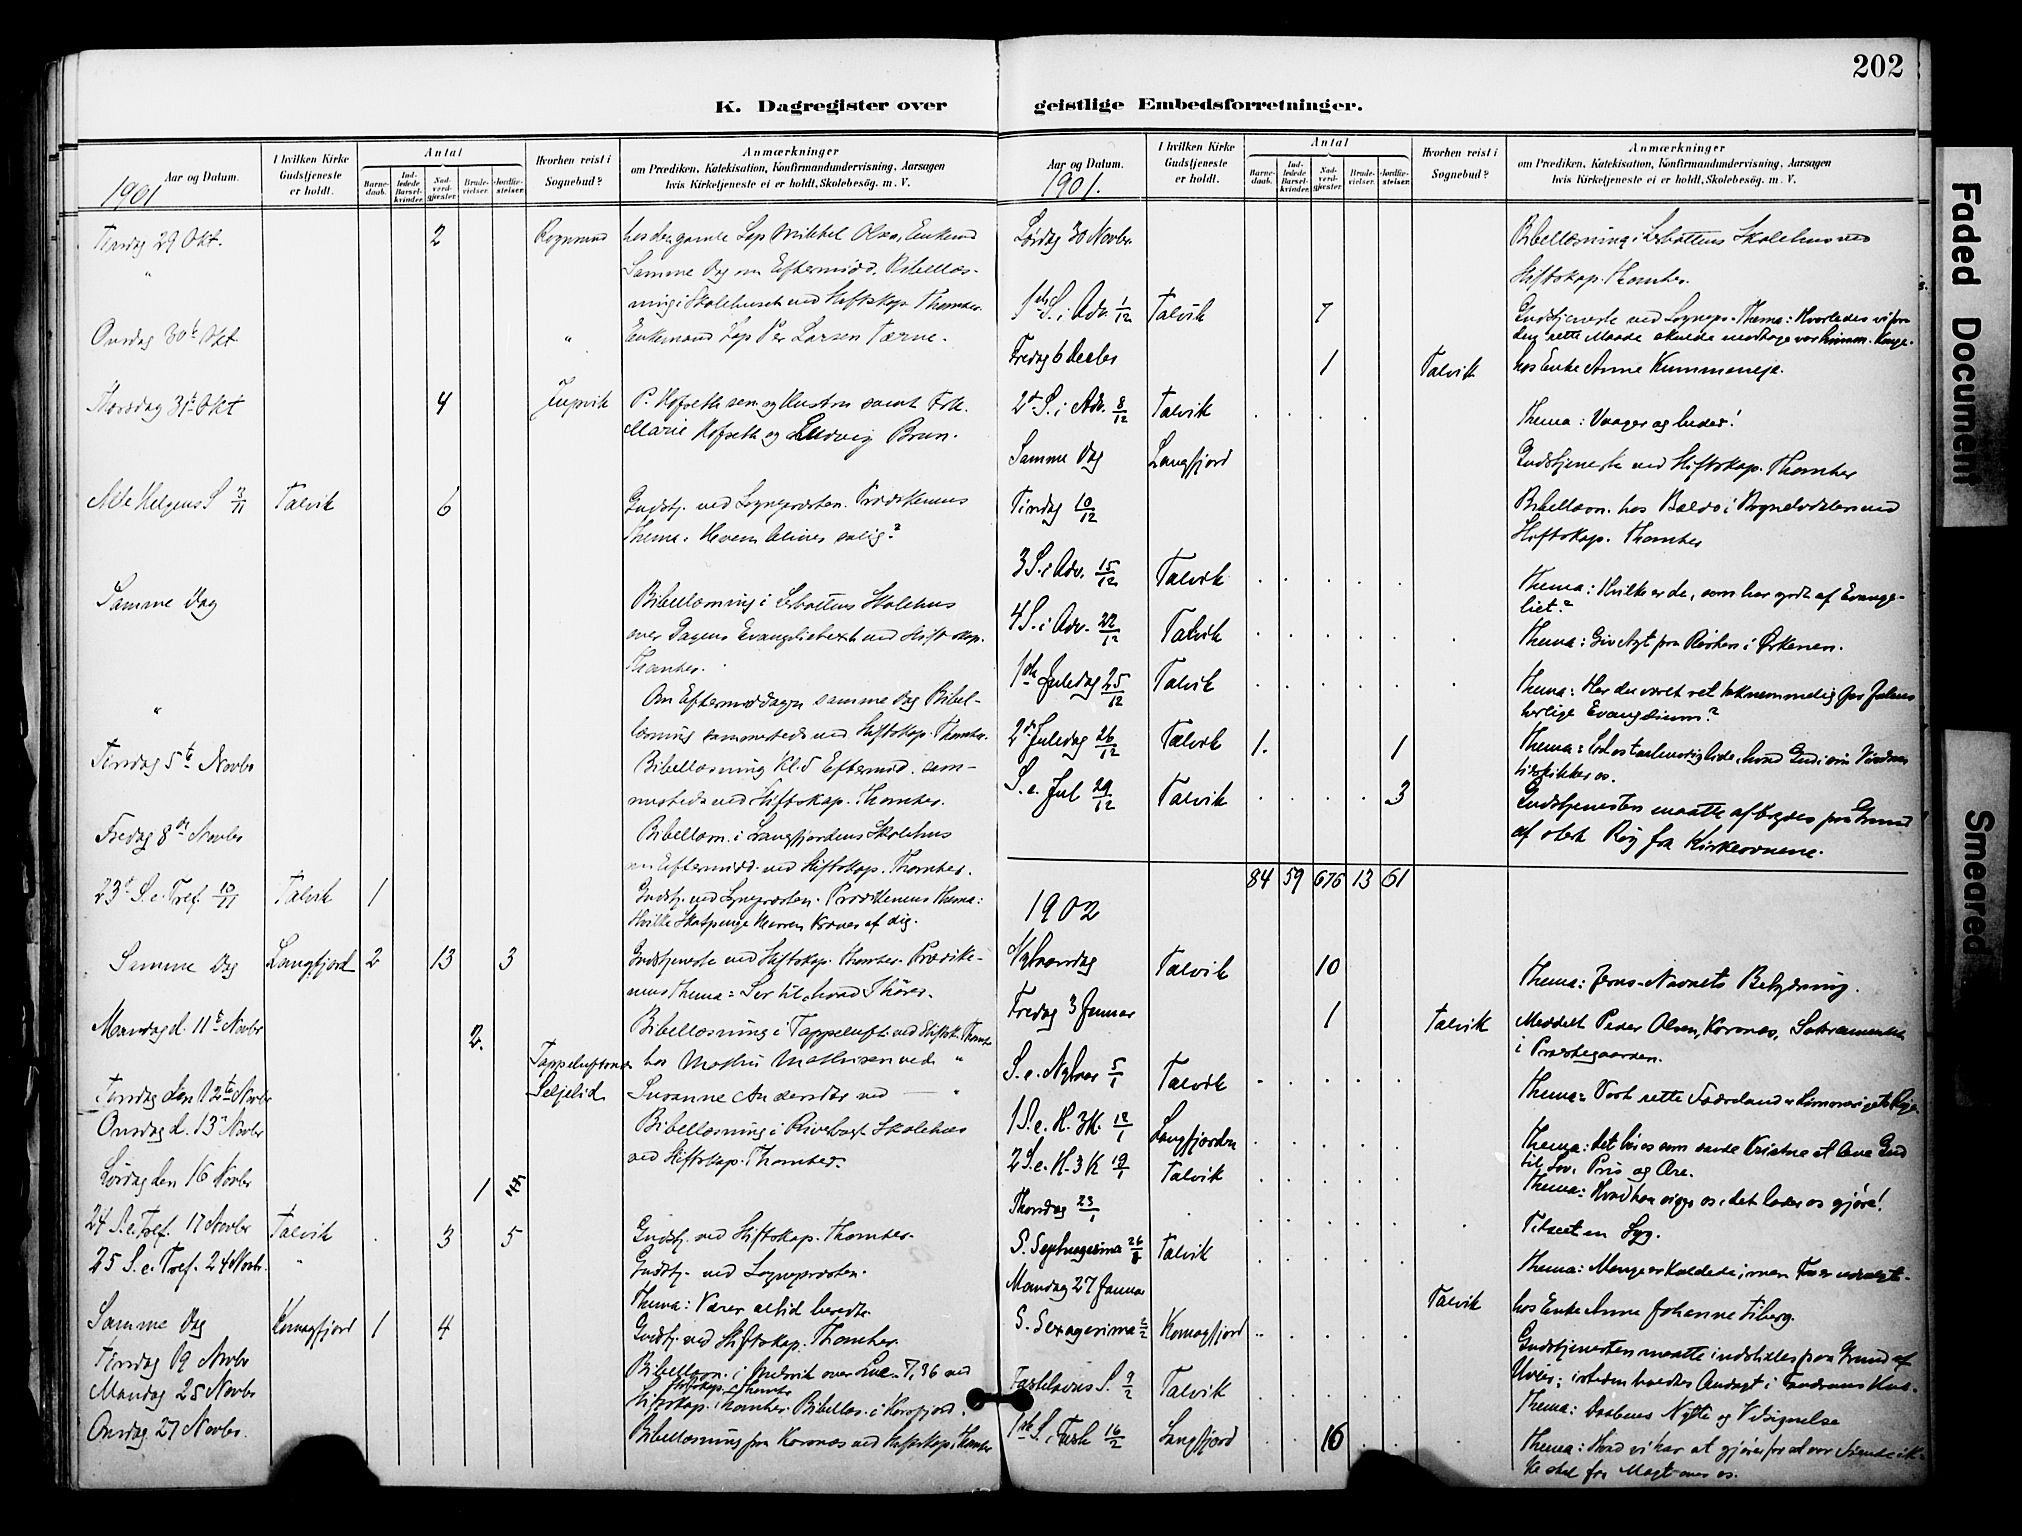 202
K. Dagregister over geistlige Embedsforretninger.
Aar og Datum.
1901
I hvilken Kirke Gudstjeneste er holdt.
Antal
Barne-daab.
Ind-ledede Barsel-kvinder.
Nad-verd-gjester.
Brude-vielser.
Jordfæ-stelser.
Hvorhen reist i Sognebud?
Anmærkninger
om Prædiken, Katekisation, Konfirmandundervisning, Aarsagen
hvis Kirketjeneste ei er holdt, Skolebesøg. m. V.
Tirsdag 29 Okt. 2 Rognsund hos den gamle Lap Mikkel Olsen, Enkemd
" Samme Dag om Eftermidd. Bibellæs-
ning i Skolehuset ved Stiftskap. Thomter.
Onsdag 30te Okt " Enkemand Lap Per Larsen Tærne.
Thorsdag 31te Okt 4 P. Hofseth sen og Hustru samt Frk.
Marie Hofseth og Ludvig Brun.
Alle Helgens S 3/11 Talvik 6 Gudstj. ved Sognepræsten. Prædikenens
Thema: Hvem bliver salig?
Samme Dag Bibellæsning i Skolehus
over Dagens Evangelietext ved Stiftskap.
Thomter.
" Om Eftermiddagen samme Dag Bibel-
læsning sammesteds ved Stiftskap. Thomter.
Tirsdag 5te Novbr Bibellæsning Kl. 5 Eftermid. sam-
mesteds ved Stiftskap. Thomter.
Fredag 8de Novbr Bibellæsn. i Langfjordens Skolehus
om Eftermidd. ved Stiftskap. Thomter.
23de S. e. Tref. 10/11 Talvik 1 Gudstj. ved Sognepræsten. Prædikenens Thema:
Hvilke Skatpenge Herren kræver af dig.
Samme Dag Langfjord 2 13 3 Gudstjeneste ved Stiftskap. Thomter. Prædike-
nens Thema: Ser til, hvad I hører.
Mandag d. 11te Novbr 2. Bibellæsning i Tappeluft ved Stiftsk. Thomter
Tappeluftnæs hos Mathis Mathisen ved "
Tirsdag den 12te Novbr Seljelid Susanne Andersdtr ved "
Onsdag d. 13de Novbr Bibellæsning i Skolehus
ved Stiftskap. Thomter.
Lørdag den 16 Novbr 1
24 S. e. Tref. 17 Novbr Talvik 3 5 Gudstj. ved Stiftskap. Thomter.
25 S. e. Tref. 24 Novbr. " Gudstj. ved Sognepræsten.
Thema: Værer altid beredte.
Samme Dag Komagfjord 1 4 Gudstj. ved Stiftskap. Thomter.
Tirsdag 19 Novbr Bibellæsn. i over Luc. 7,36 ved
Stiftskap. Thomter
Mandag 25 Novbr Stiftskap. Thomter. Bibellæs. i Korsfjord.
Onsdag 27 Novbr. Bibellæsning paa Korsnæs ved Stiftskap. Thomter
Aar og Datum.
1901.
I hvilken Kirke Gudstjeneste er holdt.
Antal
Barne-daab.
Ind-ledede Barsel-kvinder.
Nad-verd-gjester.
Brude-vielser.
Jordfæ-stelser.
Hvorhen reist i Sognebud?
Anmærkninger
om Prædiken, Katekisation, Konfirmandundervisning, Aarsagen
hvis Kirketjeneste ei er holdt, Skolebesøg. m. V.
Lørdag 30 Novbr. Bibellæsning i Skolehus ved
Stiftskap. Thomter.
1ste S. i Adv. 1/12 Talvik 7 Gudstjeneste ved Sognepr. Thema: Hvorledes vi paa
den rette Maade skulde modtage vor himm. Konge.
Fredag 6 Decbr 1 Talvik hos Enke Anne Kummeneje.
2de S. i Adv. 8/12 Talvik Thema: Vaager og beder!
Samme Dag Langfjord Gudstjeneste ved Stiftskap. Thomter
Tirsdag 10/12 Bibellæsn. hos i ved
Stiftskap. Thomter
3 S. i Adv. 15/12 Talvik Thema: Hvilke er de, som har godt af Evange-
liet?
4 S. i Adv. 22/12 Talvik Thema: Giv Agt paa Røsten i Ørkenen.
1ste Juledag 25/12 Talvik Thema: Har du været ret taknemmelig for Julens
herlige Evangelium?
2de Juledag 26/12 Talvik 1. 1 Thema: Lad os taalmodig lide, hvad Gud i sin Visdom
tilskikker os.
S. e. Jul 29/12 Talvik 3 Gudstjenesten maatte afbrydes paa Grund
af stærk Røg fra Kirkeovnene.
84 59 676 13 61
1902
Nytaarsdag Talvik 10 Thema: Jesu-Navnets Betydning.
Fredag 3 Januar 1 Talvik Meddelt Peder Olsen, Korsnæs, Sakramentet
i Præstegaarden.
S. e. Nytaar 5/1 Talvik Thema: Vort rette Fædreland er Himmeriges Rige
1 S. e. H. 3K. 12/1 Langfjorden Thema: Det bør os som sande Kristne at leve Gud
til Lov, Pris og Ære.
2 S. e. H. 3 K 19/1 Talvik Thema: Hvad han siger os, det lader os gjøre!
Thorsdag 23/1 Tilseet en Syg.
S. Septuagesima 26/1 Talvik Thema: Mange er kaldede, men Faa er udvalgte.
Mandag 27 Januar Talvik hos Enke Anne Johanne Viberg.
S. Sexagesima 2/2 Komagfjord Gudstjenesten maatte indstilles paa Grund af
Uveir; isteden holdtes Andagt i Hus.
Fastelavns S. 9/2 Talvik Thema: Daabens Nytte og Velsignelse
1ste S. i Faste 16/2 Langfjord 16 Thema: Hvad vi har at gjøre for at vor Fiende ik-
ke skal faa Magt over os.
Faded Document
Smeared